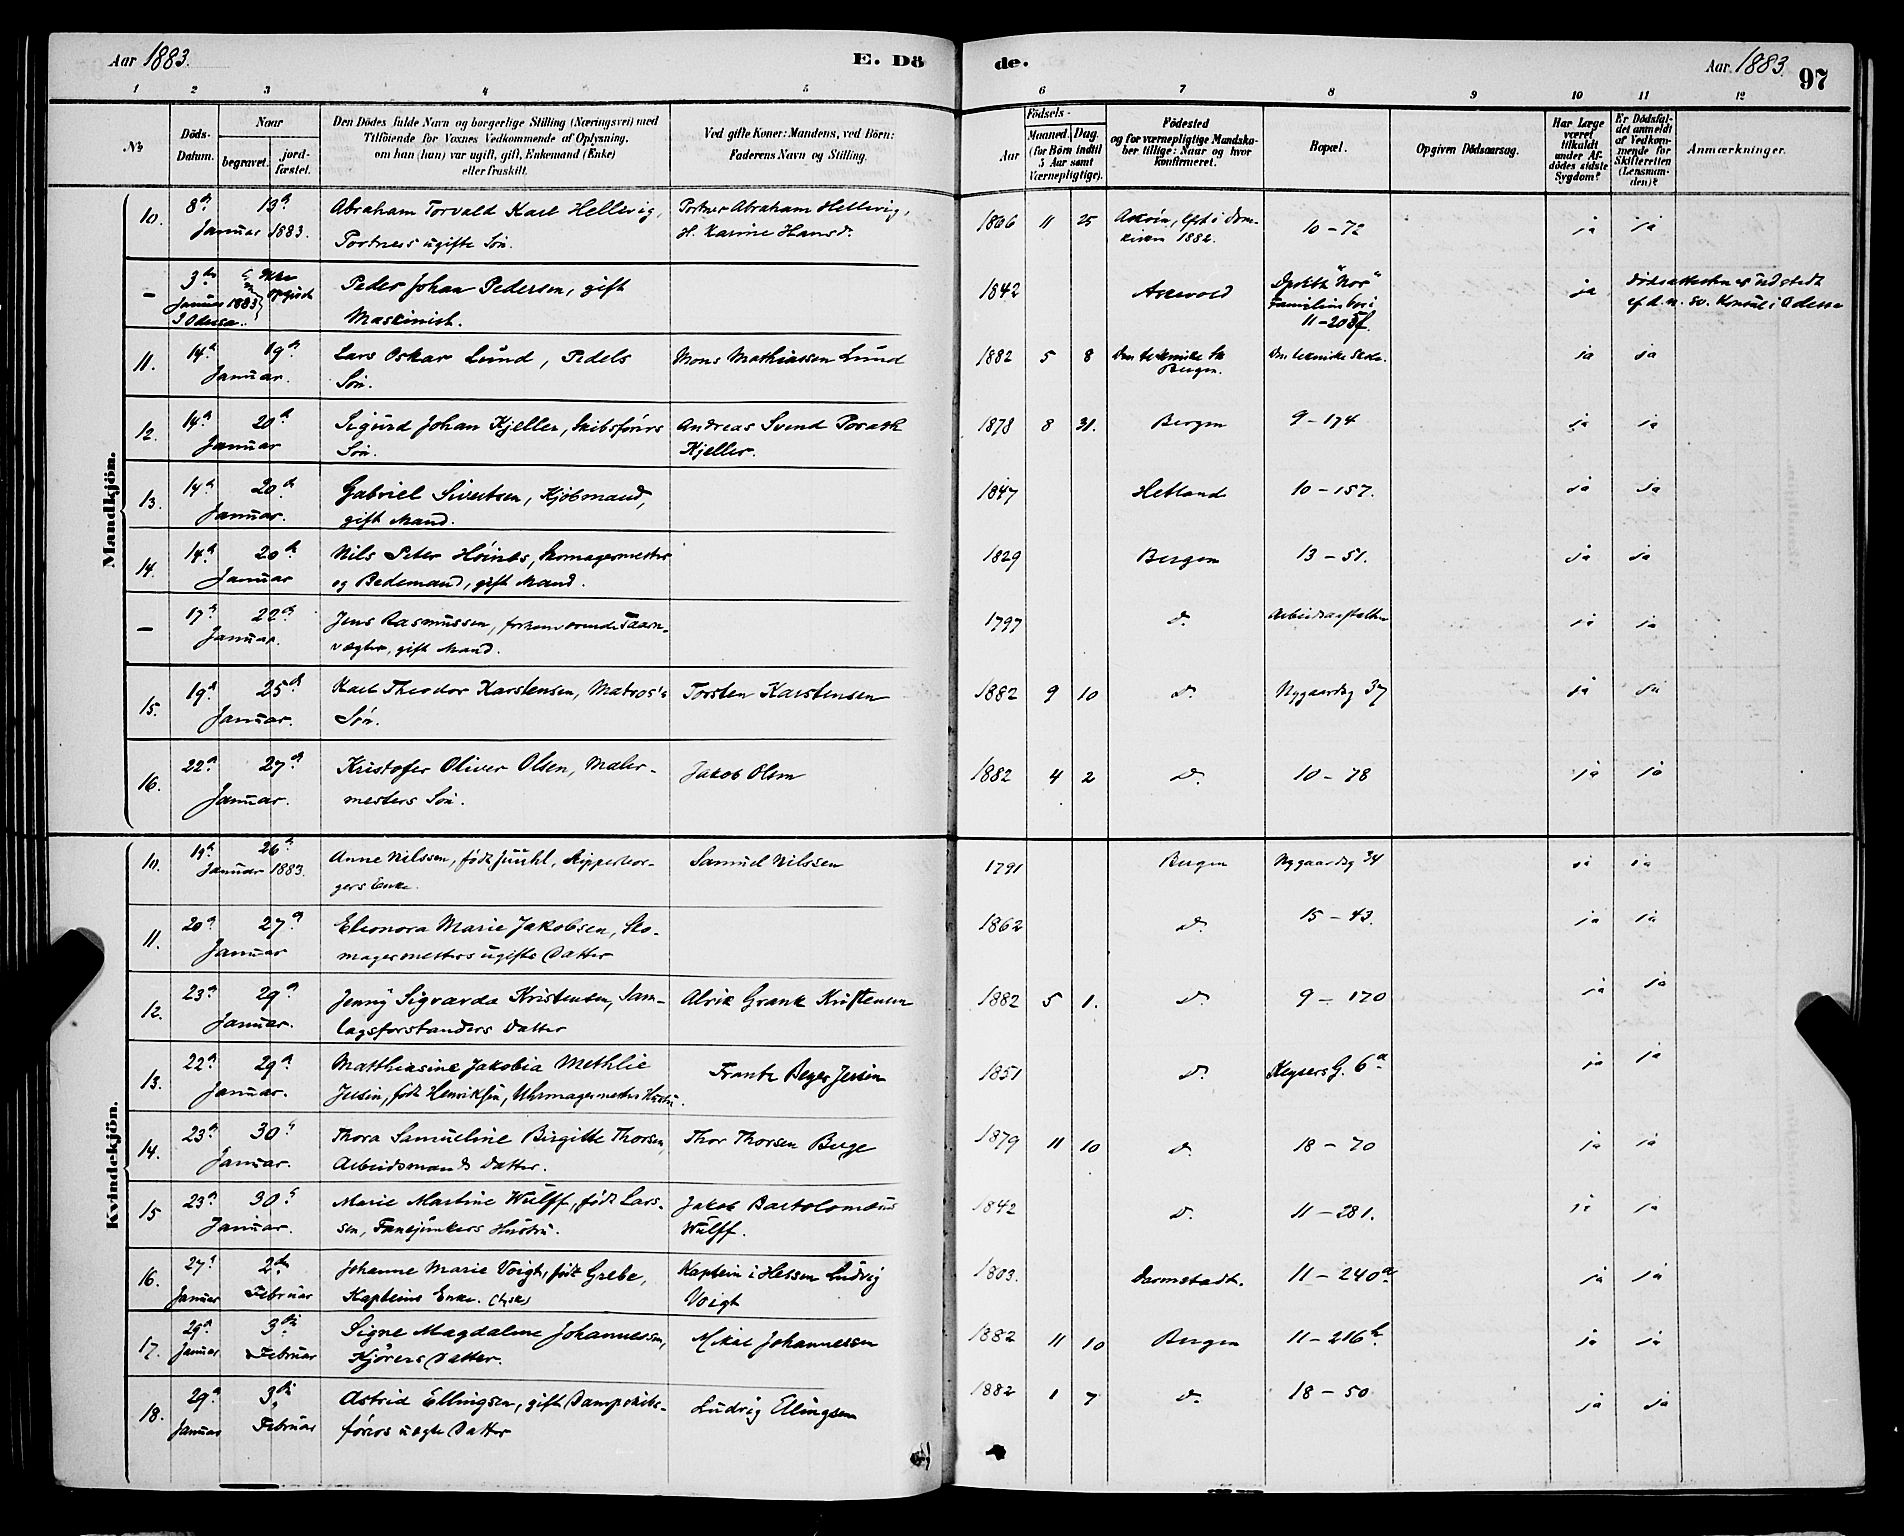 Aar 1883. E. Dö
de. Aar 1883 97
1 2 3 4 5 6 7 8 9 10 11 12
No
Döds-Datum.
Naar
begravet. jord-fæstet.
Den Dödes fulde Navn og borgerlige Stilling (Næringsvei) med
Tilföiende for Voxnes Vedkommende af Oplysning,
om han (hun) var ugift, gift, Enkemand (Enke)
eller fraskilt.
Ved gifte Koner: Mandens, ved Börn:
Faderens Navn og Stilling.
Födsels-
Aar Maaned. Dag.
(for Börn indtil
5 Aar samt
Værnepligtige).
Födested
og for værnepligtige Mandska-
ber tillige: Naar og hvor
konfirmeret.
Bopæl.
Opgiven Dödsaarsag.
Har Læge
været
tilkaldt
under Af-
dödes sidste
Sygdom?
Er Dödsfal-
det anmeldt
af Vedkom-
mende for
Skifteretten
(Lensman-
den)?
Anmærkninger.
Mandkjön.
10. 8de 13de Abraham Torvald Karl Hellevig, Portner Abraham Hellevig, 1866 11 25 Askøen, i Dom- 10-72 ja ja
Januar 1883. Portners ugifte Søn. H. Karine Hansd. kirken 1882.
- 3de Peder Johan Pedersen, gift 1842 Askvold "Nor" ja Dødsattesten er udstedt
Januar 1883 Maskinist. Familien bor i af d. n. sv. Konsul i Odessa
I Odessa. 11-205f.
11. 14de 19de Lars Oskar Lund, Pedels Mons Mathiassen Lund 1882 5 8 Den tekniske Sk Den tekniske Skole. ja ja
Januar. Søn. Bergen.
12. 14de 20de Sigurd Johan Kjeller, Skibsførers Andreas Svend Kjeller. 1878 8 31. Bergen 9-174 ja ja
Januar Søn.
13. 14de 20de Gabriel Sivertsen, Kjøbmand, 1847 Hetland 10-157. ja ja
Januar. gift Mand.
14. 14de 20de Nils Peter Skomagermester 1829 Bergen 13-51. ja ja
Januar og Bedemand, gift Mand.
- 17de 22de Jens Rasmussen, forhenværende Taarn- 1797 D. Arbeidsanstalten ja ja
Januar. vægter, gift Mand.
15. 19de 25de Karl Theodor Karstensen, Matros's Torsten Karstensen 1882 9 10 D. Nygaardsg 37 ja ja
Januar. Søn.
16. 22de 27de Kristofer Oliver Olsen, Maler- Jakob Olsen 1882 4 2 D. 10-78 ja ja
Januar. mesters Søn.
Kvindekjön.
10. 19de 26de Anne Nilssen, født Juuhl, Skipperbor- Samuel Nilssen 1791 Bergen Nygaardsg 34 ja ja
Januar 1883. gers Enke.
11. 20de 27de Eleonora Marie Jakobsen, Sko- 1862 D. 15-43. ja ja
Januar magermesters ugifte Datter
12. 23de 29de Jenny Sigvarda Kristensen, Sam- Alrik Grank Kristensen 1882 5 1. D. 9-170 ja ja
Januar. lagsforstanders Datter
13. 22de 29de Matthiasine Jakobia Methlie Frantz Beyer Jersin 1851 D. Keysers G. 6a ja ja
Januar. Jersin, født Henriksen, Uhrmagermesters Hustru.
14. 23de 30de Thora Samueline Birgitte Thorsen, Thor Thorsen Berge 1879 11 10 D. 18-70 ja ja
Januar. Arbeidsmands Datter.
15 23de 30de Marie Martine Wulff, født Lars- Jakob Bartolomæus 1842 D. 11-281. ja ja
Januar. sen, Fanejunkers Hustru. Wulff.
16. 27de 2den Johanne Marie Voigt, født Grebe, Kaptein i Hessen Ludvig 1803. Darmstadt. 11-240a ja ja
Januar Februar Kapteins Enke. (tysk) Voigt
17. 29de 3die Signe Magdalene Johannessen, Mikal Johannessen 1882 11 10 Bergen 11-216b ja ja
Januar Februar Kjørers Datter.
18. 29de 3die Astrid Ellingsen, gift Dampskibs- Ludvig Ellingsen 1882 1 7 D. 18-50 ja ja
Januar Februar førers uægte Datter